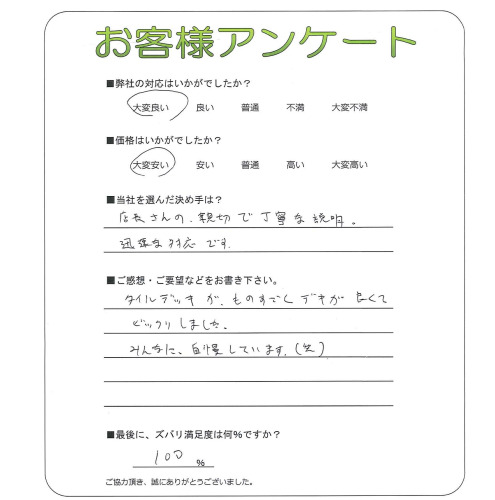 お客様アンケート
■弊社の対応はいかがでしたか?
大変良い 良い 普通 不満 大変不満
■価格はいかがでしたか?
大変安い 安い 普通 高い 大変高い
■当社を選んだ決め手は?
店長さんの、親切で丁寧な説明。
迅速な対応です.
■ご感想・ご要望などをお書き下さい。
タイルデッキが、ものすごくデキが良くて
ビックリしました。
みんなに、自慢しています.(笑)
■最後に、ズバリ満足度は何%ですか?
100 %
ご協力頂き、誠にありがとうございました。